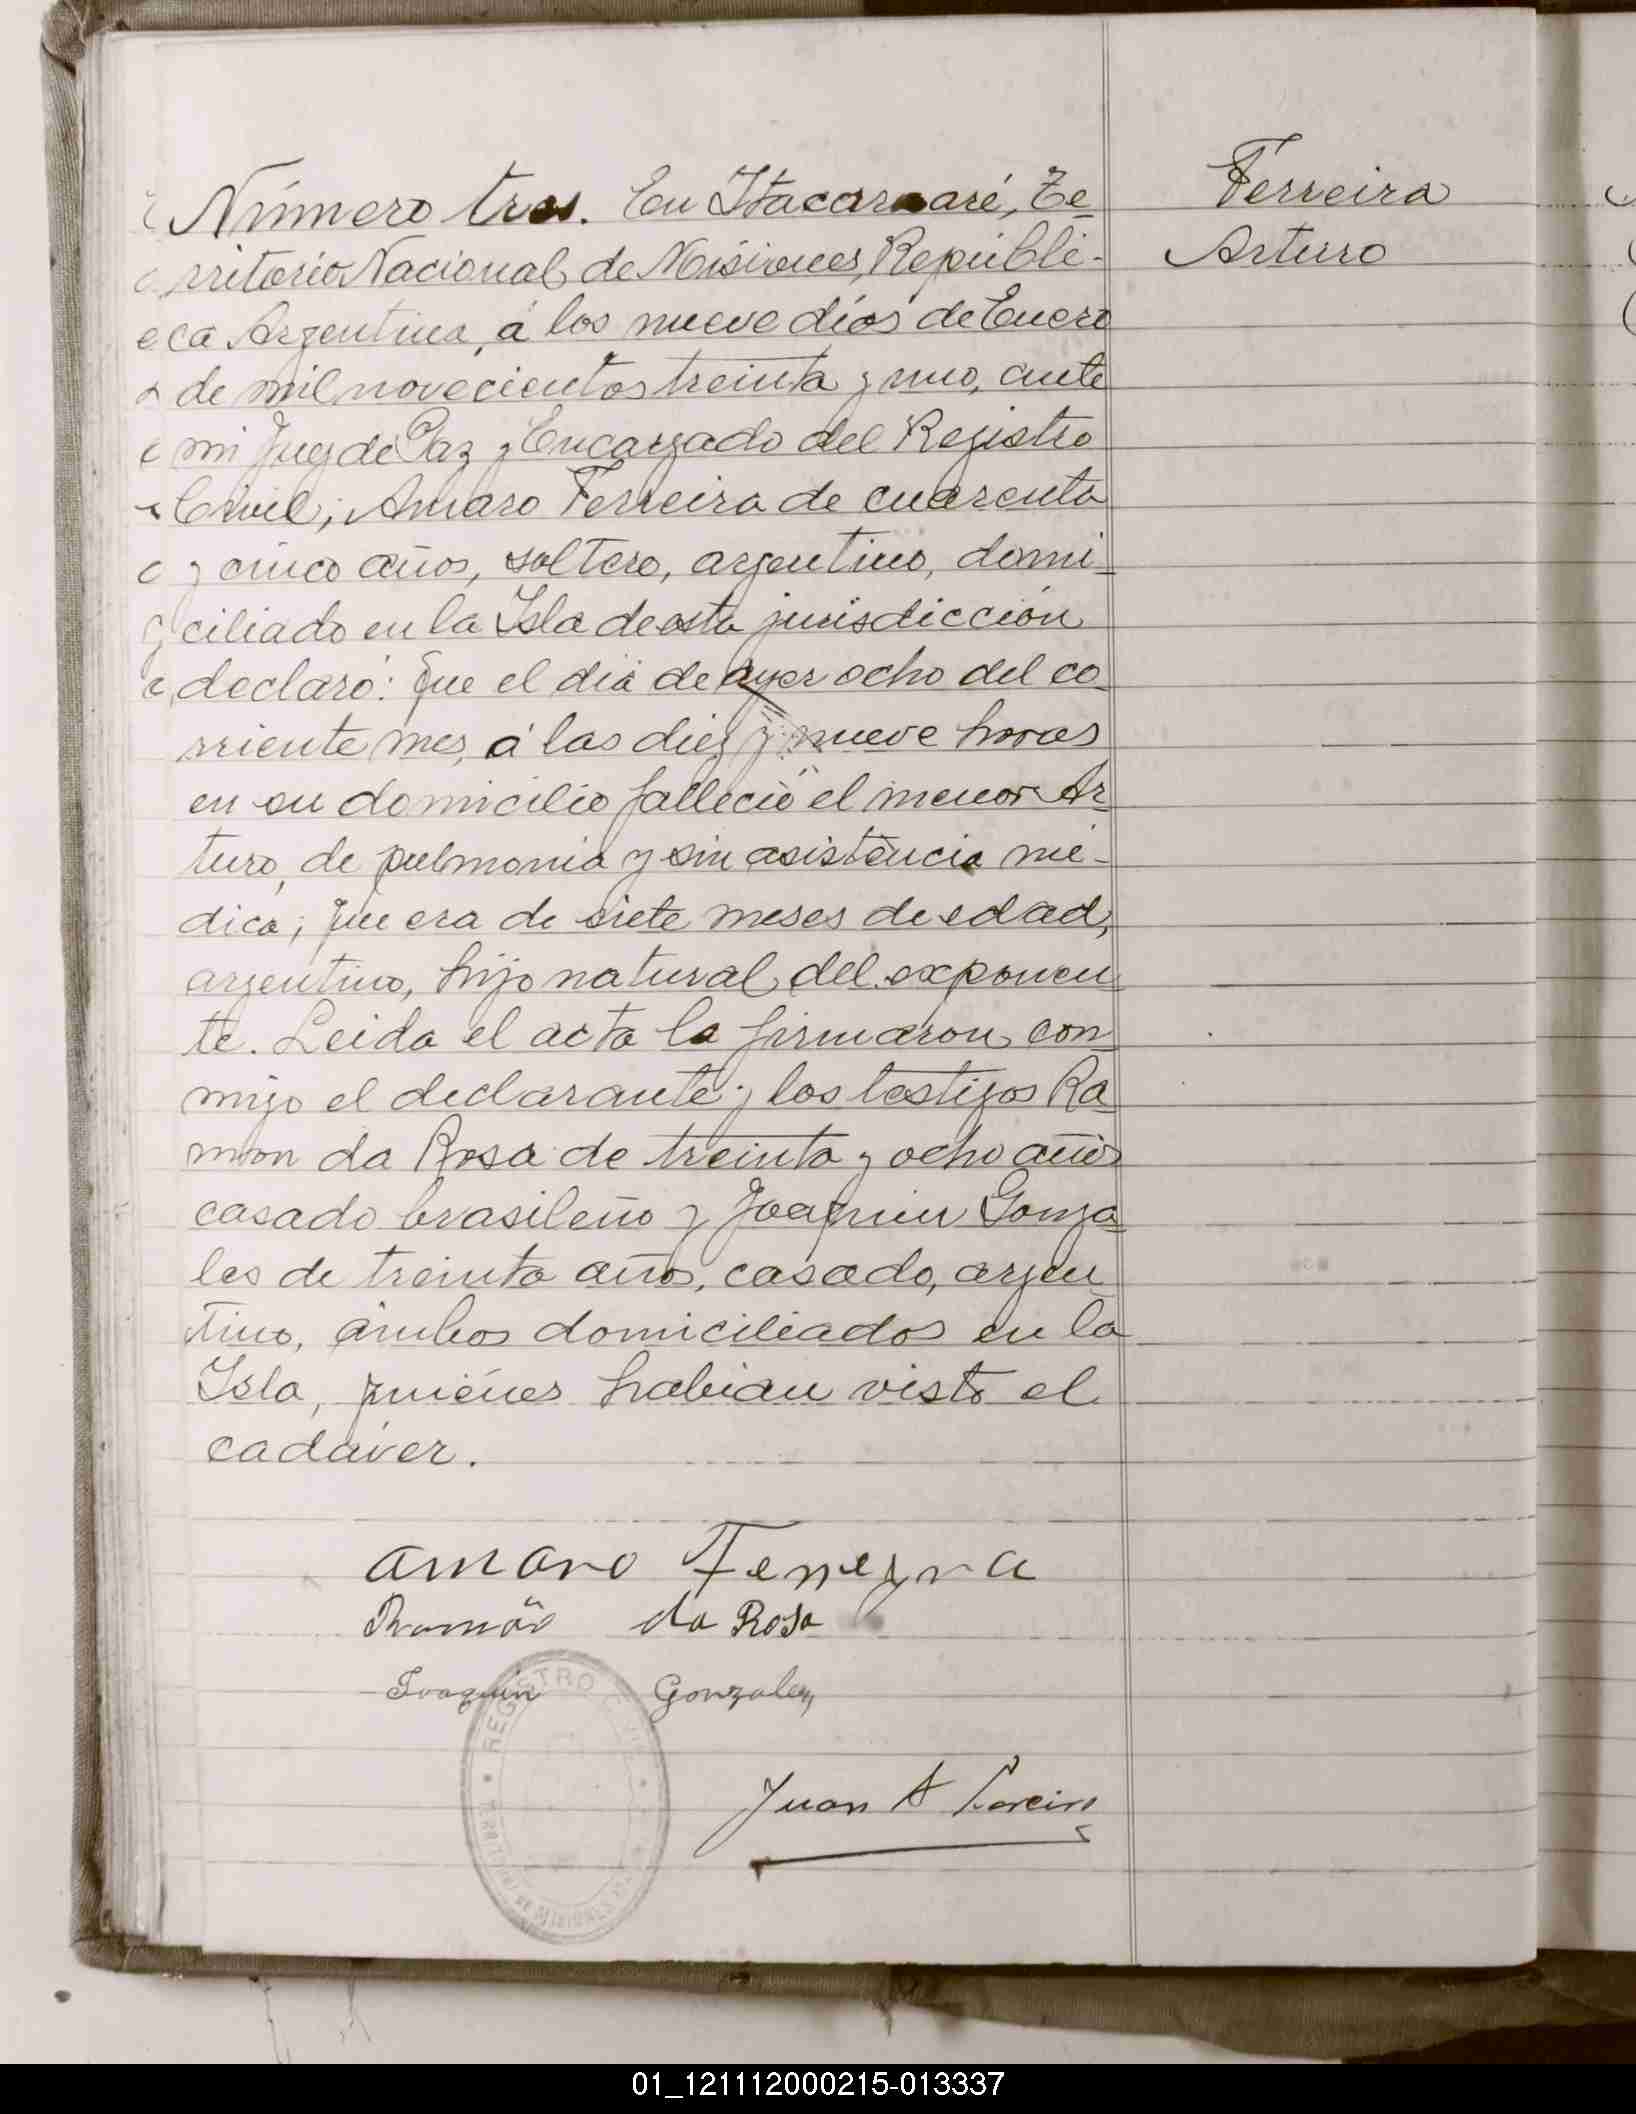 Número tres. En Itacaruaré, Te-
rritorio Nacional de Misiones, Repúbli-
ca Argentina, á los nueve días de Enero
de mil novecientos treinta y uno, ante
mi Juez de Paz y Encargado del Registro
Civil; Amaro Ferreira de cuarenta
y cinco años, soltero, argentino, domi-
ciliado en la Isla de esta jurisdicción
declaró: que el día de ayer ocho del co-
rriente mes, á las diez y nueve horas
en su domicilio falleció el menor Ar-
turo, de pulmonia y sin asistencia mé-
dica; que era de siete meses de edad,
argentino, hijo natural del exponen
te. Leida el acta la firmaron con
migo el declarante y los testigos Ra-
mon da Rosa de treinta y ocho años
casado brasileño y Joaquin Gonza-
les de treinta años, casado, argen
tino, ámbos domiciliados en la
Isla, quiénes habian visto el
cadáver.
Amaro Ferreyra
Ramão da Rosa
Joaquin Gonzalez
Juan A
REGISTRO CIVIL
Ferreira
Arturo
01_121112000215-013337